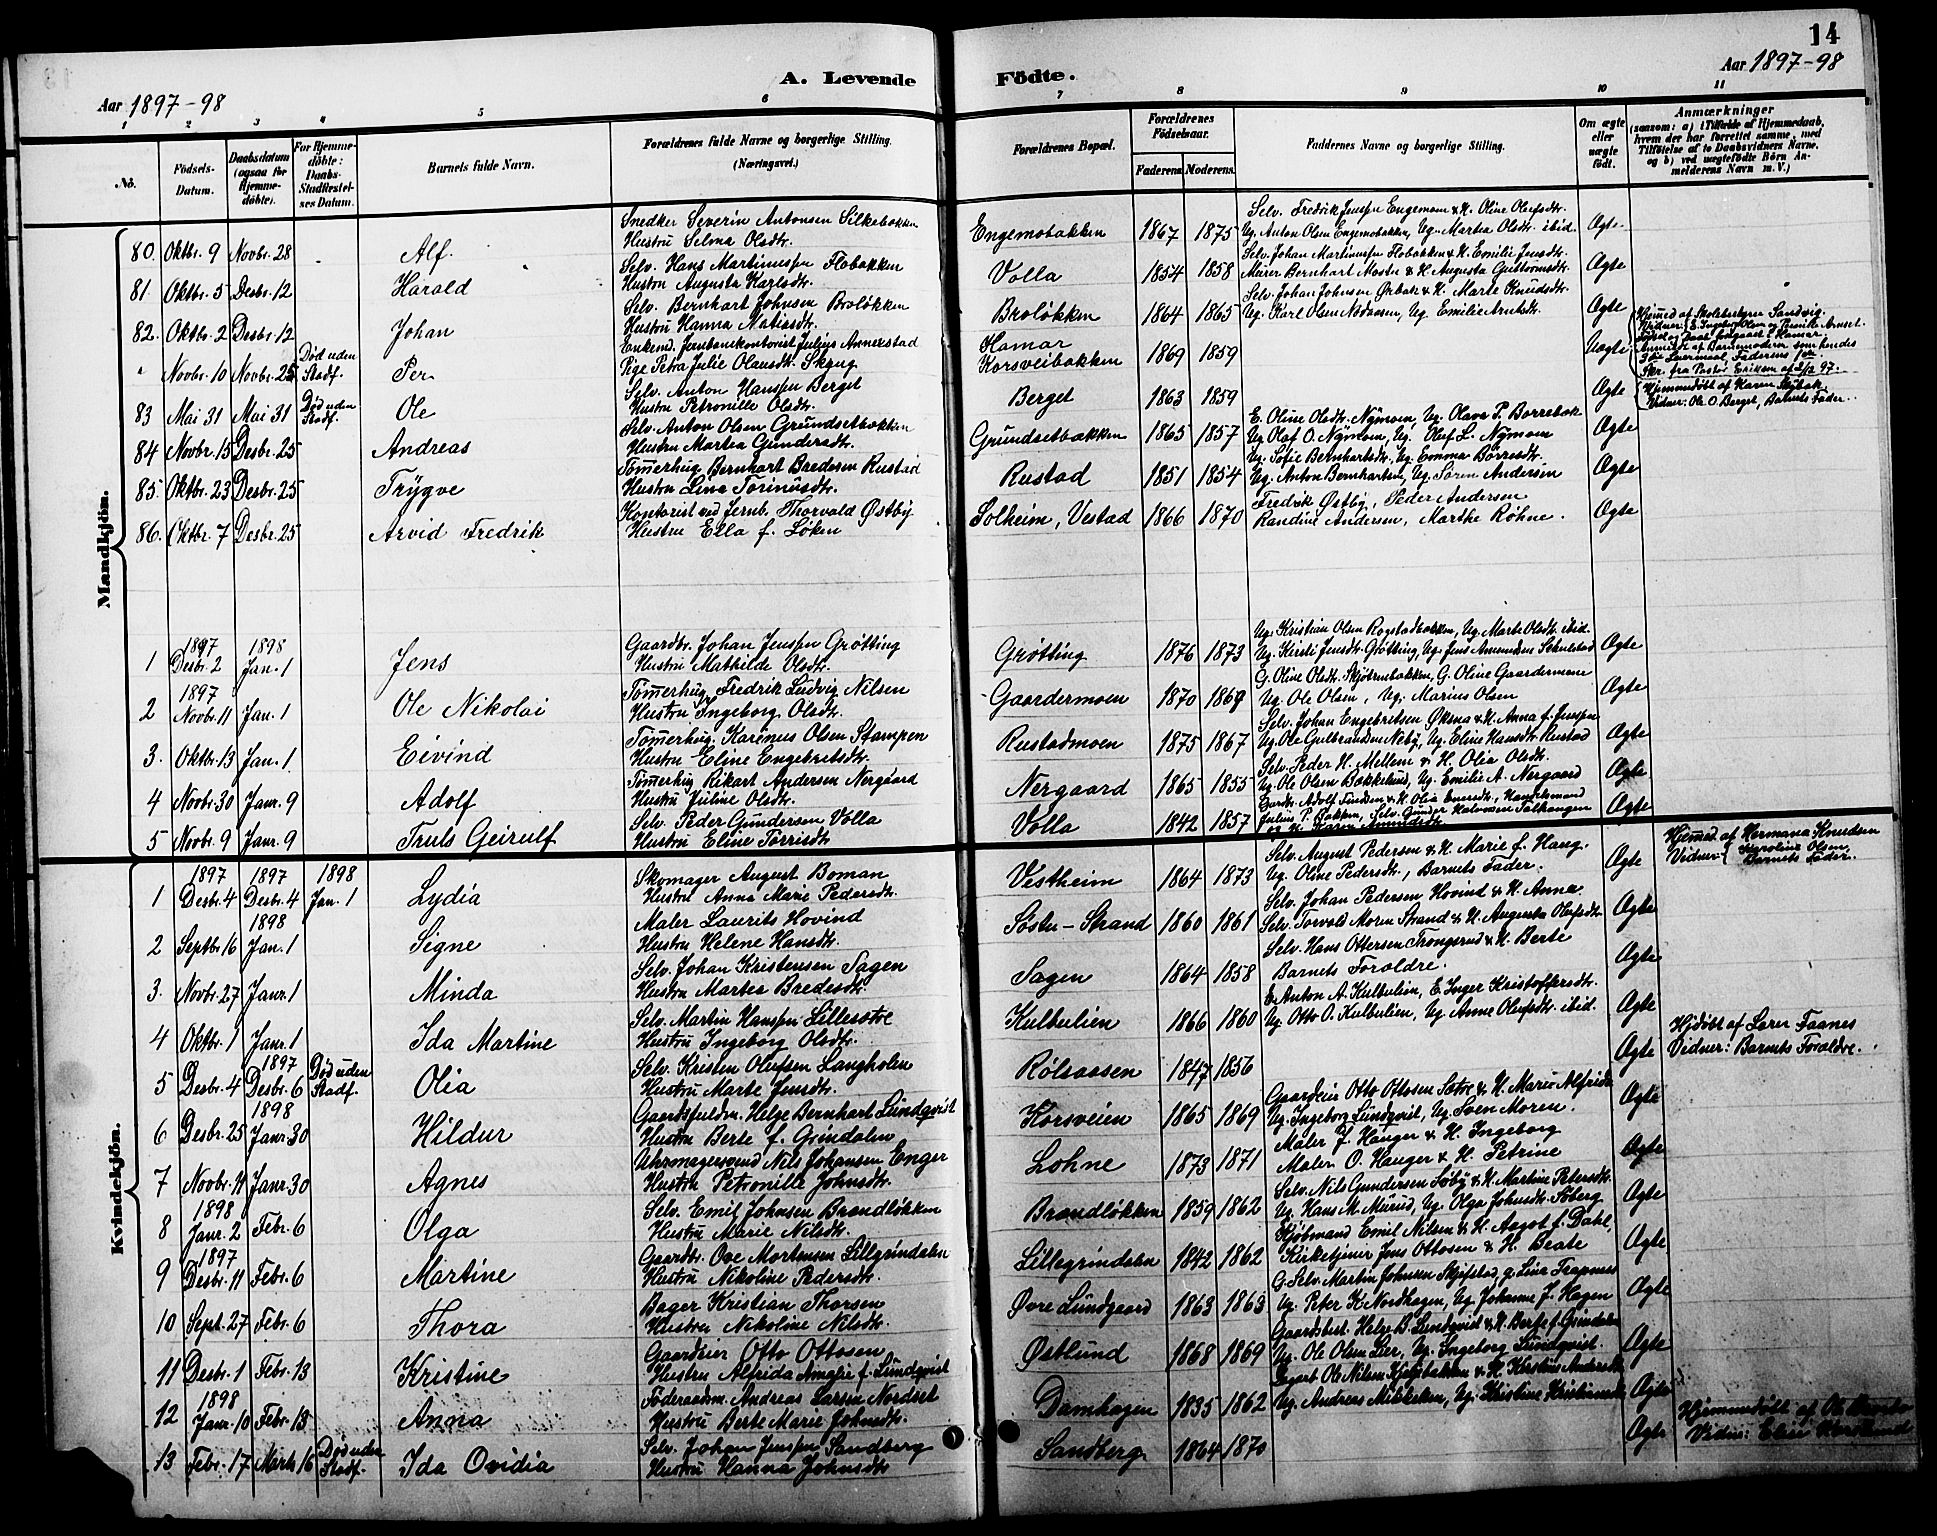 14
A. Levende
Födte.
Aar 1897-98
Aar 1897-98
1 2 3 4 5 6 7 8 9 10 11
No.
Födsels-Datum.
Daabsdatum (ogsaa for Hjemmedöbte).
For Hjemmedöbte: Daabs-Stadfæstelses Datum.
Barnets fulde Navn.
Forældrenes fulde Navne og borgerlige Stilling. (Næringsvei.)
Forældrenes Bopæl.
Forældrenes Födselsaar.
Faderens Moderens
Faddernes Navne og borgerlige Stilling.
Om ægte eller uægte födt.
Anmærkninger
(saasom: a) i Tilfælde af Hjemmedaab, hvem der har forrettet samme, med Tilföielse af to Daabsvidners Navne, og b) ved uægtefödte Börn Anmelderens Navn m. V.)
Mandkjön.
80. Oktbr. 9 Novbr. 28 Alf. Snedker Severin Antonsen Silkebakken Engemobakken 1867 1875 Selv. Fredrik Jenssen Engemoen & H. Oline Olufsdtr. Ægte
Hustru Selma Olsdtr. Ug. Anton Olsen Engemobakken, Ug. Martea Olsdtr. ibid.
81. Oktbr. 5 Desbr. 12 Harald Selv. Hans Martinussen Flobakken Volla 1854 1858 Selv. Johan Martinussen Flobakken & H. Emilie Jensdtr. Ægte
Hustru Augusta Karlsdtr. Murer Bernhart Moster & H. Augusta
82. Oktbr. 2 Desbr. 12 Johan Selv. Bernhart Johnsen Broløkken Broløkken 1864 1865 Selv. Johan Johnsen & H. Marte Knudsdtr. Ægte
Hustru Hanna Matiasdtr. Ug. Karl Olsen, Ug. Emilie Arntsdtr.
" Novbr. 10 Novbr. 25 Død uden Stadf. Per Enkemd. Jernbanekontorist Julius Annerstad Hamar 1869 1859 Uægte
Pige Petra Julie Olausdtr. Skaug Korsveibakken
Hjemed af Skolebestyrer Sandvig.
83 Mai 31 Mai 31 Død uden Stadf. Ole Selv. Anton Hanssen Berget Berget 1863 1859 Ægte
Hustru Petronille Olsdtr. Hjemmedøbt af Karen
Vidner: Ole O. Berget, Barnets Fader.
84 Novbr. 15 Desbr. 25 Andreas Selv. Anton Olsen Grundsetbakken Grundsetbakken 1865 1857 E. Oline Olsdtr. Nymoen, Ug. Olava P. Borrebæk Ægte
Hustru Martea Gundersdtr. Ug. Olaf O. Nymoen, Ug. Oluf L. Nymoen
85. Oktbr. 23 Desbr. 25 Trygve Tømmerhug. Bernhart Bredesen Rustad Rustad 1851 1854 Ug. Sofie Bernhartsdtr., Ug. Emma Børresdtr. Ægte
Hustru Lina Torinusdtr. Ug. Anton Bernhartsen, Ug. Søren Andersen
86. Oktbr. 7 Desbr. 25 Arvid Fredrik Kontorist ved Jernb. Thorvald Østby Solheim, Vestad 1866 1870 Fredrik Østby, Peder Andersen Ægte
Hustru Ella f. Løken Randine Andersen, Marthe Røhne.
1 1897 Desbr. 2 1898 Jan. 1 Jens Gaardbr. Johan Jenssen Grøtting Grøtting 1876 1873 Ug. Kristian Olsen Rogstadbakken, Ug. Marte Olsdtr. ibid. Ægte
Hustru Mathilde Olsdtr. Ug. Kirsti Jensdtr. Grøtting, Ug. Jens Amundsen
2 1897 Novbr. 11 Jan. 1 Ole Nikolai Tømmerhug. Fredrik Ludvig Nilsen Gaardermoen 1870 1869 G. Oline Olsdtr., G. Oline Gaardermoen Ægte
Hustru Ingeborg Olsdtr. Ug. Ole Olsen, Ug. Marius Olsen
3. Oktbr. 13 Jan. 1. Eivind Tømmerhug. Karinus Olsen Stampen Rustadmoen 1875 1867 Selv. Johan Engebritsen Øksna & H. Anna f. Jenssen Ægte
Hustru Eline Engebritsdtr. Ug. Ole Gulbrandsen Neby, Ug. Eline Hansdtr. Rustad
4 Novbr. 30 Janr. 9 Adolf Tømmerhug. Rikart Andersen Nergaard Nergaard 1865 1855 Selv. Peder H. Mellem & H. Olia Olsdtr. Ægte
Hustru Juline Olsdtr. Ug. Ole Olsen Bækkelund, Ug. Emilie A. Nergaard
5 Novbr. 9 Janr. 9 Truls Geirulf Selv. Peder Gundersen Volla Volla 1842 1857 Ægte
Hustru Eline Torrisdtr. & H. Karen Amundsdtr.
Kvindekjön.
1 1897 Desbr. 4 1897 Desbr. 4 1898 Jan. 1 Lydia Skomager August Boman Vestheim 1864 1873 Selv. August Pedersen & H. Marie f. Haug. Ægte Hjemed. af Hermana Knudsen
Hustru Anna Marie Pedersdtr. Ug. Oline Pedersdtr., Barnets Fader. Vidner: Karoline Olsen, Barnets Fader.
2 Septbr. 16 1898 Jan. 1 Signe Maler Laurits Hovind Søstu-Strand 1860 1861 Selv. Johan Pedersen Hovind & H. Anna Ægte
Hustru Helene Hansdtr. Selv. Torvald Moren Strand & H. Augusta Olufsdtr.
3. Novbr. 27 Janr. 1 Minda Selv. Johan Kristensen Sagen Sagen 1864 1858 Selv. Hans Ottersen Trongerud & H. Berte Ægte
Hustru Martea Bredesdtr. Barnets Forældre.
4 Oktbr. 1 Janr. 1 Ida Martine Selv. Martin Hanssen Lillesætre Kulbulien 1866 1860 E. Anton A. Kulbulien, E. Inger Kristoffersdtr. Ægte
Hustru Ingeborg Olsdtr. Ug. Otto O. Kulbulien, Ug. Anne Olufsdtr. ibid.
5 Desbr. 4 1897 Desbr. 6 Død uden Stadf. Olia Selv. Kristen Olufsen Langholen Rølsaasen 1847 1856 Ægte Hjdøbt af Lærer Faanes
Hustru Marte Jensdtr. Vidner: Barnets Forældre.
6 Desbr. 25 1898 Janr. 30 Hildur Gaardsfuldm. Helge Bernhart Lundqvist Korsveien 1865 1869 Gaardeier Otto Ottosen Sætre & H. Marie Alfrida Ægte
Hustru Berte f. Grindalen Ug. Ingeborg Lundqvist, Ug. Sven Moren.
7 Novbr. 11 Janr. 30 Agnes Uhrmagersvend Nils Johansen Enger Lohne 1873 1871 Maler J. Hauger & H. Ingeborg Ægte
Hustru Petronille Johnsdtr. Maler O. Hauger & H. Petrine
8 1898 Janr. 2 Febr. 6 Olga Selv. Emil Johnsen Brandløkken Brandløkken 1859 1862 Selv. Nils Gundersen Søby & H. Martine Petersdtr. Ægte
Hustru Marie Nilsdtr. Ug. Hans M. Murud, Ug. Olga Johnsdtr. Søberg
9 1897 Desbr. 11 Febr. 6 Martine Gaardbr. Ove Mortensen Lillegrindalen Lillegrindalen 1842 1862 Kjøbmand Emil Nilsen & H. Aagot f. Dahl, Ægte
Hustru Nikoline Pedersdtr. Kirketjener Jens Ottosen & H. Beate
10 Sept. 27 Febr. 6 Thora Bager Kristian Thorsen Øvre Lundgaard 1863 1863 G. Selv. Martin Johnsen Skjefstad, g. Lina Trapnes Ægte
Hustru Nikoline Nilsdtr. Ug. Peter K. Nordhagen, Ug. Johanne f. Hagen
11 Desbr. 1 Febr. 13 Kristine Gaardeier Otto Ottosen Østlund 1868 1869 Gaardsbest. Helge B. Lundqvist & H. Berte f. Grindalen Ægte
Hustru Alfrida Amalie f. Lundqvist Ug. Ole Olsen Lier, Ug. Ingeborg Lundqvist.
12 1898 Janr. 10 Febr. 13 Anna Føderaadsm. Andreas Larsen Nordset Damhagen 1835 1862 Ægte
Hustru Berte Marie Johnsdtr. Ug. Andreas Mikkelsen, Ug. Kristine
13 Febr. 17 Marts 16 Død uden Stadf. Ida Ovidia Selv. Johan Jenssen Sandberg Sandberg 1864 1870 Ægte Hjemmedøbt af
Hustru Hanna Johnsdtr. Vidner: